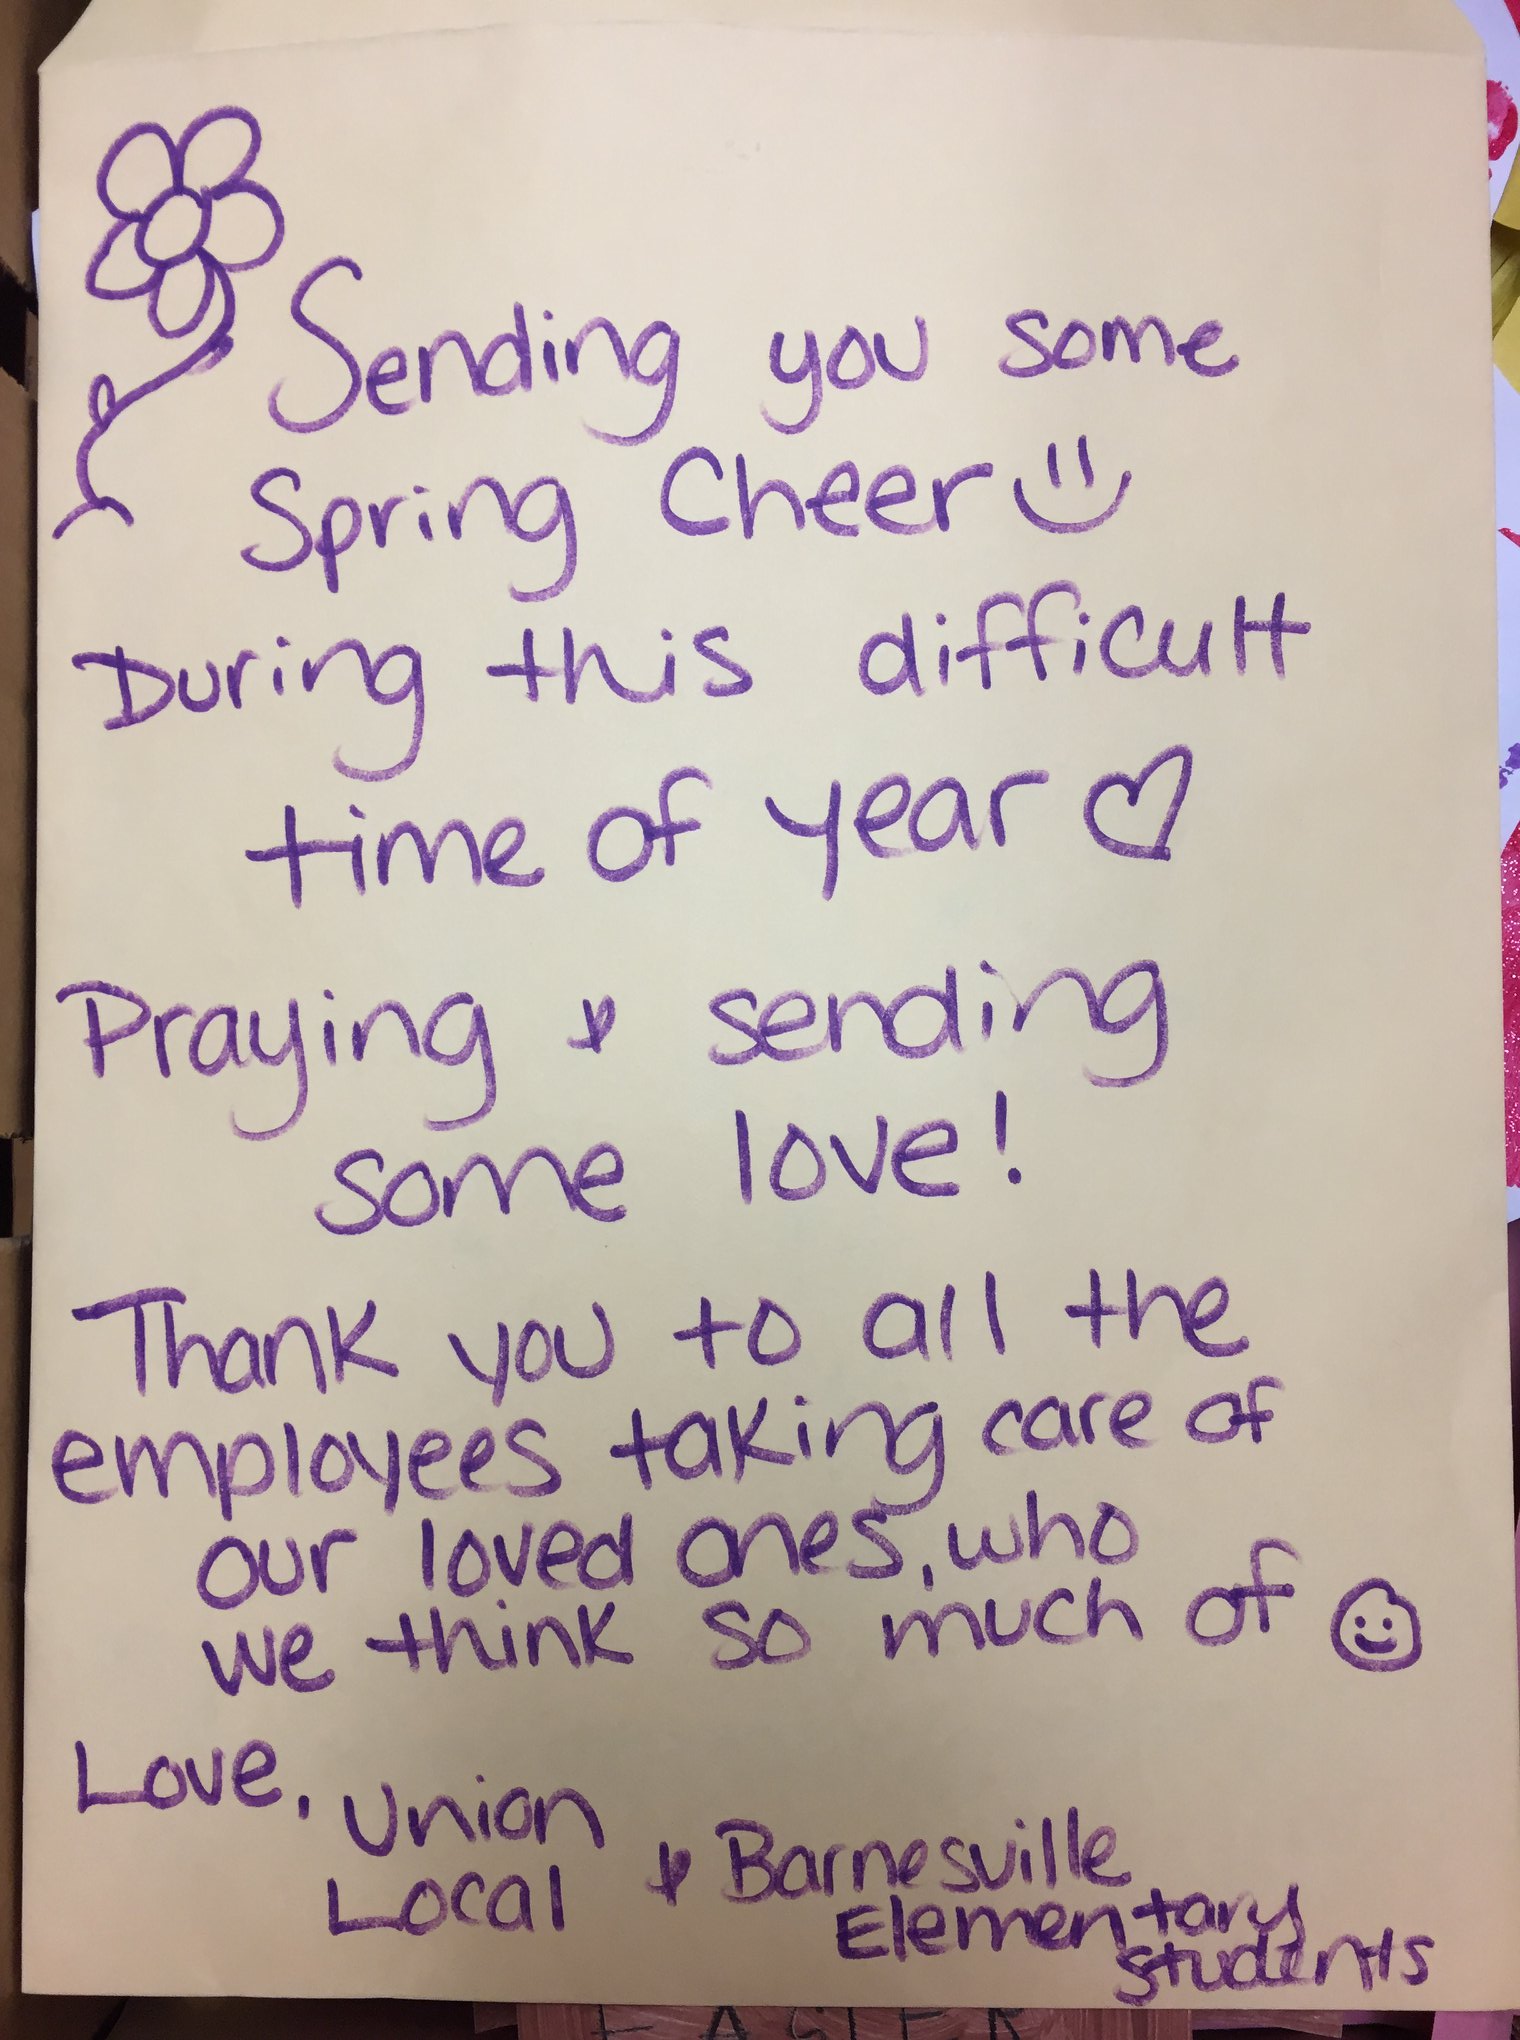 Sending you some
Spring Cheer
During this difficult
time of year
Praying & sending
some love!
Thank you to all the
employees taking care of
our loved ones, who
we think so much of
Love, Union
Local & Barnesville
Elementary
students
EASTER